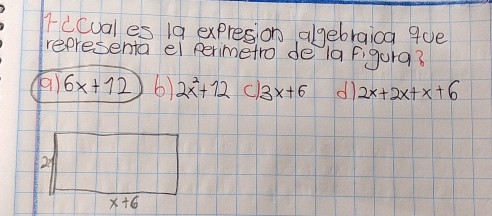 1-¿Cual es la expresión algebraica que
representa el perimetro de la figura?
a) 6x+12 b) 2x²+12 c) 3x+6 d) 2x+2x+x+6
2x
x+6